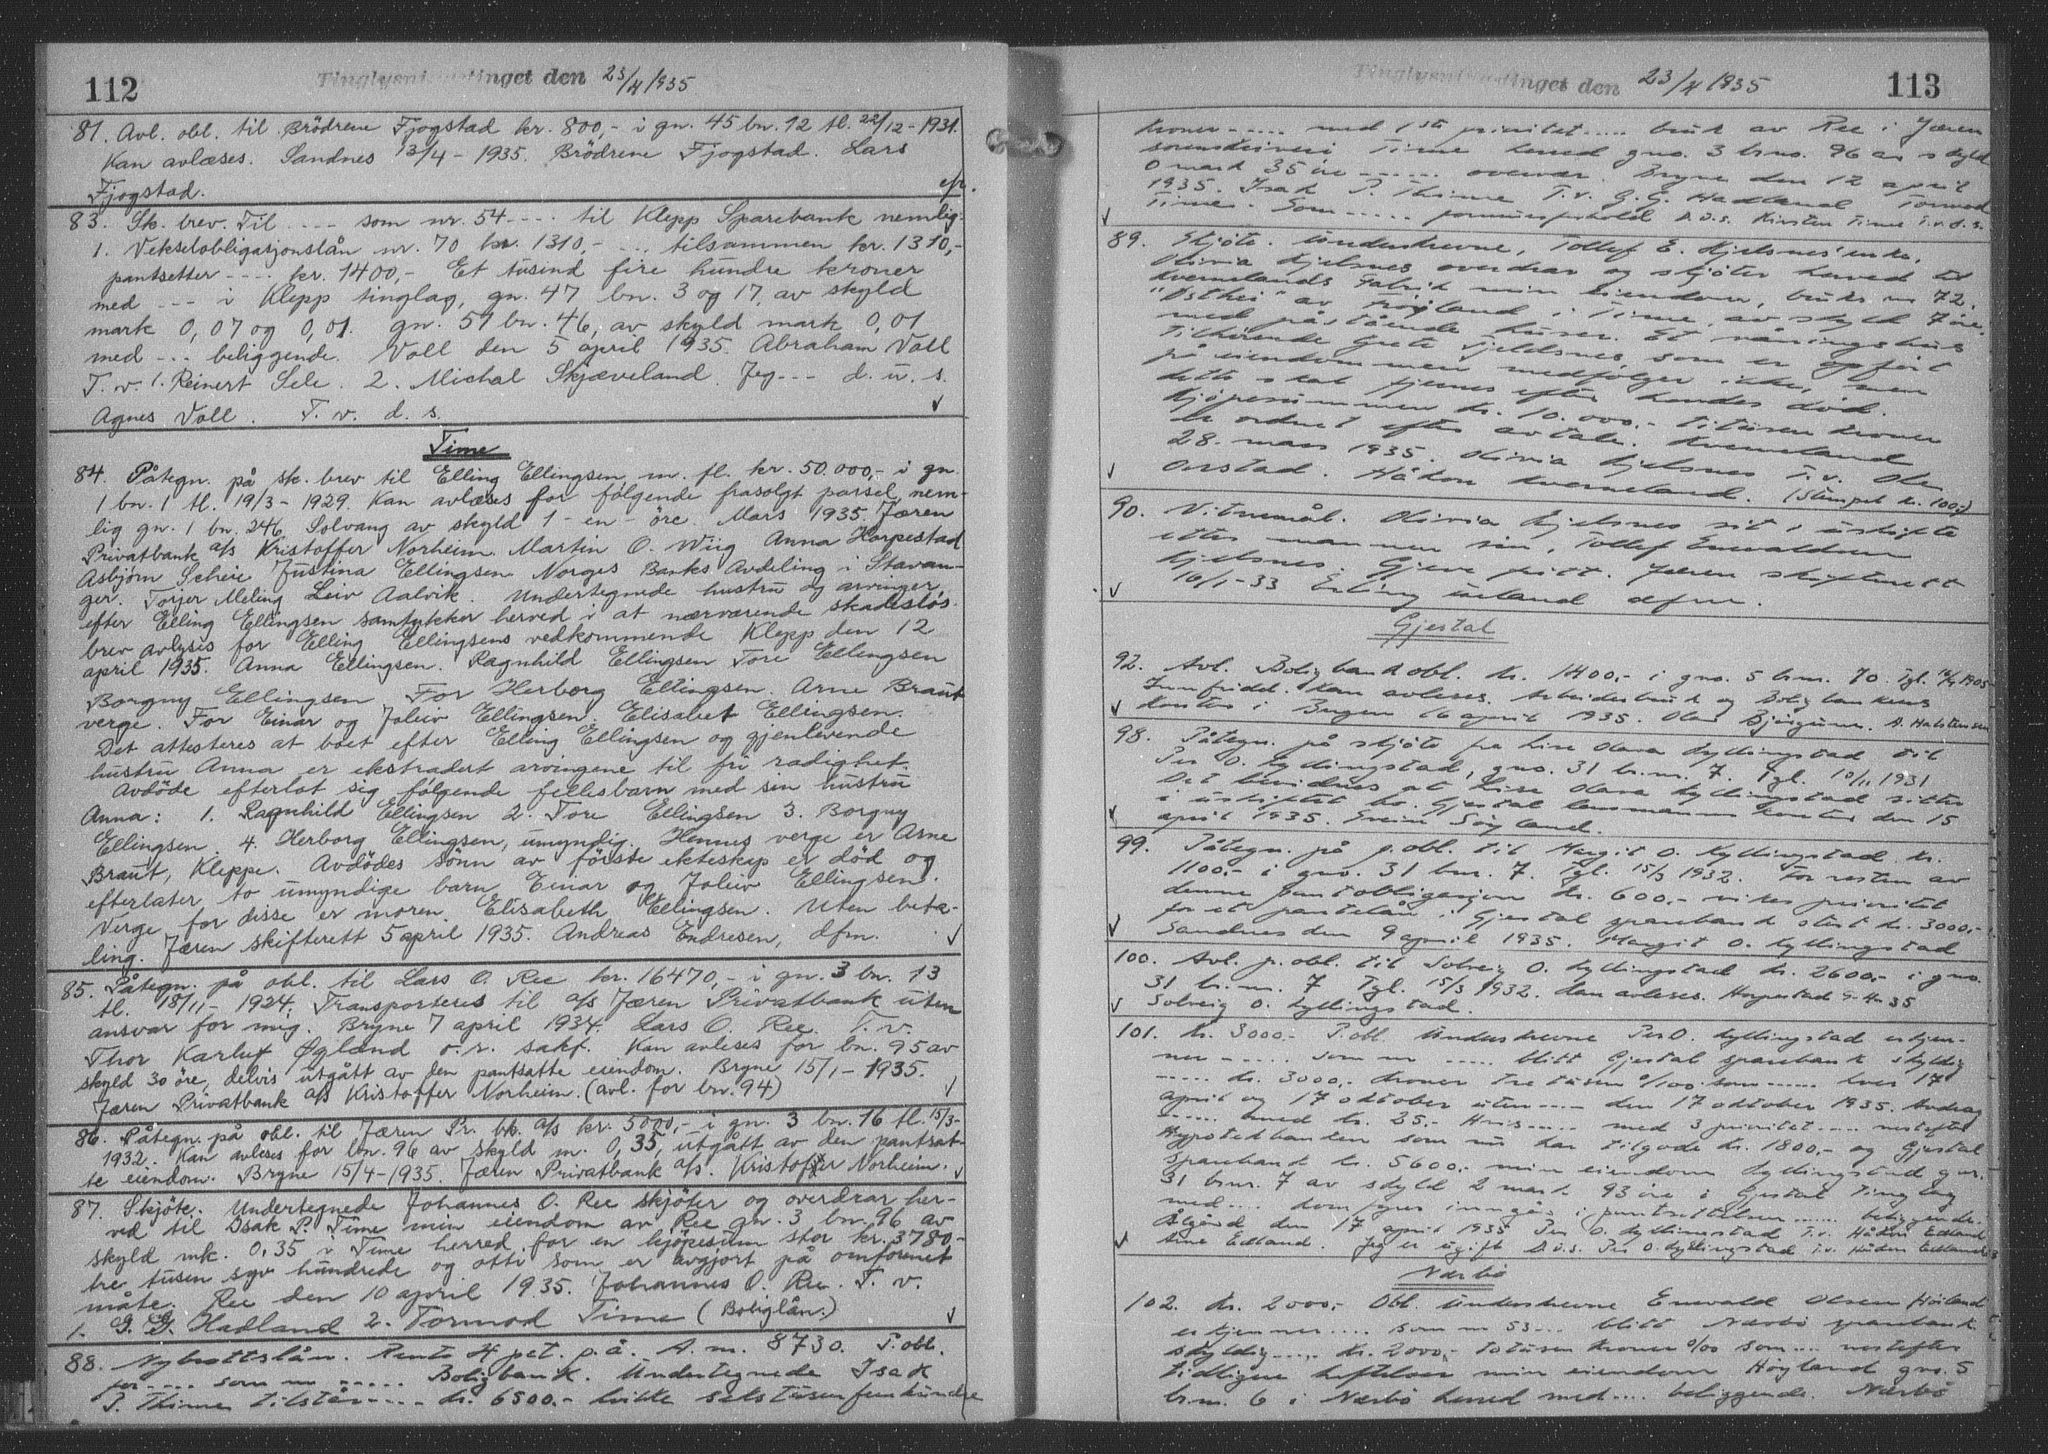 112
Tinglysningstinget den 23/4 1935
81. Avl. obl. til Brödrene Fjogstad kr. 800,- i gn. 45 bn. 12 tl. 22/12-1931.
Kan avlæses. Sandnes 13/4-1935. Brödrene Fjogstad. Lars
Fjogstad.
83. Sk. brev. Til .... som nr. 54 .... til Klepp Sparebank nemlig.
1. Vekselobligasjonslån nr. 70 kr. 1310,- ... tilsammen kr. 1310,-
pantsetter .... kr. 1400,- Et tusind fire hundre kroner
med --- i Klepp tinglag, gn. 47 bn. 3 og 17, av skyld
mark 0,07 og 0,01. gn. 51 bn. 46, av skyld mark 0,01
med --- beliggende. Voll den 5 april 1935. Abraham Voll
T. v. 1. Reinert Sele. 2. Michal Skjæveland. Jeg --- d. u. s.
Agnes Voll. T. v. d. s.
Time
84. Påtegn. på sk. brev til Elling Ellingsen m. fl. kr. 50.000,- i gn.
1 bn. 1 tl. 19/3-1929. Kan avlæses for følgende frasolgt parsel, nem-
lig gn. 1 bn. 246 Solvang av skyld 1 - en - öre. Mars 1935 Jæren
Privatbank a/s Kristoffer Norheim. Martin O. Wiig Anna Horpestad
Asbjørn Scheie Justina Ellingsen Norges Banks Avdeling i Stavan-
ger. Torjer Meling Leiv Aalvik. Undertegnede hustru og arvinger
efter Elling Ellingsen samtykker herved i at nærværende skadesløs-
brev avlyses for Elling Ellingsens vedkommende Klepp den 12
april 1935. Anna Ellingsen. Ragnhild Ellingsen Tore Ellingsen
Borgny Ellingsen For Herborg Ellingsen. Arne Braut
verge. For Einar og Joleiv Ellingsen. Elisabet Ellingsen.
Det attesteres at boet efter Elling Ellingsen og gjenlevende
hustru Anna er ekstradert arvingene til fri rådighet.
Avdöde efterlot sig følgende fellesbarn med sin hustru
Anna: 1. Ragnhild Ellingsen 2. Tore Ellingsen 3. Borgny
Ellingsen 4. Herborg Ellingsen, umyndig. Hennes verge er Arne
Braut, Kleppe. Avdödes sönn av förste ekteskap er död og
efterlater to umyndige barn Einar og Joleiv Ellingsen.
Verge for disse er moren. Elisabeth Ellingsen. Uten beta-
ling. Jæren skifterett 5 april 1935. Andreas Endresen, dfm.
85. Påtegn. på obl. til Lars O. Ree kr. 16470,- i gn. 3 bn. 13
tl. 18/11-1924. Transporteres til a/s Jæren Privatbank uten
ansvar for mig. Bryne 7 april 1934. Lars O. Ree. T. v.
Thor Karluf Øgland o.r. sakf. Kan avleses for bn. 95 av
skyld 30 öre, delvis utgått av den pantsatte eiendom. Bryne 15/1-1935.
Jæren Privatbank a/s Kristoffer Norheim. (avl. for bn. 94)
86. Påtegn. på obl. til Jæren Pr. bk. a/s kr. 5000,- i gn. 3 bn. 16 tl. 15/3-
1932. Kan avleses for bn. 96 av skyld m. 0,35, utgått av den pantsat-
te eiendom. Bryne 15/4-1935. Jæren Privatbank a/s. Kristoffer Norheim.
87. Skjöte. Undertegnede Johannes O. Ree skjöter og overdrar her-
ved til Isak P. Time min eiendom av Ree gn. 3 bn. 96 av
skyld mk. 0,35 i Time herred for en kjöpesum stor kr. 3780-
tre tusen syv hundrede og otti som er avgjort på omforenet
måte. Ree den 10 april 1935. Johannes O. Ree. T. v.
1. G. G. Hadland 2. Tormod Time (Boliglån.)
88. Nybrottslån. Rente 4 pct. p.å. A. m. 8730. P. obl.
for .... som nr .... Boligbank. Undertegnede Isak
P. Thime tilstår .... kr. 6500.- hvilke sekstusenfemhundre
113
Tinglysningstinget den 23/4 1935
kroner .... med 1ste prioritet .... bruk av Ree i Jæren
sorenskriveri Time herred gno. 3 brno. 96 av skyld
0 mark 35 öre .... overvær. Bryne den 12 april
1935. Isak P. Thime T.v. G. G. Hadland Tormod
Time. Som .... formuesforhold D.u.s. Kirsten Time T.v.d.s.
89. Skjöte. Underskrevne, Tollef E. Kjelsnes' enke,
Olivia Kjelsnes overdrar og skjöter herved til
Kvernelands Fabrik min eiendom, bruks nr 72.
"Østhei" av Frøyland i Time, av skyld 7 öre,
med påstående huser. Et våningshus
tilhörende Grete Fjeldsnes som er opfört
på eiendommen medfölger ikke, men
dette skal fjernes efter hendes död.
Kjøpesummen kr. 10.000,- titusen kroner
er ordnet efter avtale. Kverneland
28. mars 1935. Olivia Kjelsnes T.v. Ole
Orstad. Håkon Kverneland. (Stempel kr. 100,-)
90. Vitnemål. Olivia Kjelsnes sit i uskifte
etter mannen sin, Tollef Enevaldsen
Kjelsnes. Gjeve fritt. Jæren skifterett
16/1-33 Erling Ueland dfm.
Gjestal
92. Avl. Boligbankobl. kr. 1400,- i gno. 5 brnr. 70. Tgl. 1905
Innfridd. Kan avleses. Arbeiderbruk og Boligbankens
Kontor i Bergen 16 april 1935. Olav Bjørgum. A. Halstensen
98. Påtegn. på skjöte fra Lise Olava Kyllingstad til
Per O. Kyllingstad, gno. 31 br.nr. 7. Tgl. 10/11 1931
Det bevidnes at Lise Olava Kyllingstad sitter
i uskiftet bo. Gjestal lensmanns kontor den 15
april 1935. Svein Söyland.
99. Påtegn. på p.obl. til Margit O. Kyllingstad kr.
1100,- i gno. 31 bnr. 7. Tgl. 15/3 1932. For resten av
denne pantobligasjon kr. 600,- vikes prioritet
for et pantelån i Gjestal sparebank stort kr. 3000,-
Sandnes den 9 april 1935. Margit O. Kyllingstad
100. Avl. p. obl. til Solveig O. Kyllingstad kr. 2600,- i gno.
31 br.nr. 7 Tgl. 15/3 1932. Kan avleses. Horpestad 9-4-35
Solveig O. Kyllingstad.
101. Kr. 3000,- P.obl. Underskrevne Per O. Kyllingstad erkjen-
ner .... som nr .... blitt Gjestal sparebank skyldig
.... kr. 3000,- kroner tretusen 0/100 som .... hver 17
april og 17 oktober uten .... den 17 oktober 1935. Avdrag
.... med kr. 25.- Hvis .... med 3 prioritet .... nestefter
Hypotekbanken som nu har tilgode kr. 1800,- og Gjestal
sparebank kr. 5600,- min eiendom Kyllingstad gnr.
31 brnr. 7 av skyld 2 mark 93 öre i Gjestal tinglag
med .... dom fyres inngås i pantsettelsen .... beliggende.
Ålgård den 17 april 1935 Per O. Kyllingstad T.v. Håkon Edland
Arne Edland. Jeg er ugift D.u.s. Per O. Kyllingstad T.v. Håkon Edland
Nærbö
102. Kr. 2000,- Obl. Underskrevne Enevald Olsen Höiland
erkjenner .... som nr 53 .... blitt Nærbö sparebank
skyldig .... kr. 2000,- totusen kroner 0/00 som .... nestefter
tidligere heftelser min eiendom Högland gno. 5
brnr. 6 i Nærbö herred med .... beliggende. Nærbö